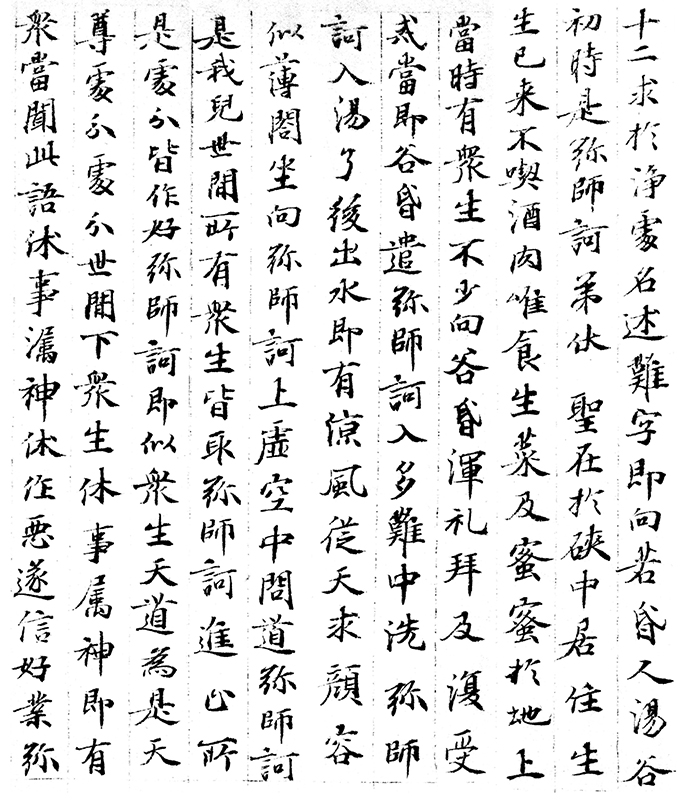 十二求於淨處名述難字即向若昏人湯谷
初時是弥師訶弟伏　聖在於硤中居住生
生已来不喫酒肉唯食生菜及蜜蜜於地上
當時有衆生不少向谷昏渾礼拜及復受
戒當即谷昏遣弥師訶入多難中洗弥師
訶入湯了後出水即有涼風從天求顔容
似薄閤坐向弥師訶上虚空中問道弥師訶
是我兒世間所有衆生皆取弥師訶進止所
是處分皆作好弥師訶即似衆生天道為是天
尊處分處分世間下衆生休事属神即有
衆當聞此語休事属神休作悪遂信好業弥